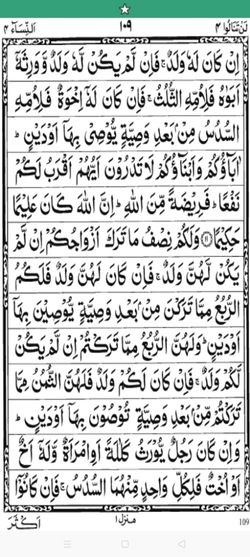 لن تنالوا ٤ ١٠٩ النساء ٤
اِنْ كَانَ لَهٗ وَلَدٌ ۚ فَاِنْ لَّمْ يَكُنْ لَّهٗ وَلَدٌ وَّوَرِثَهٗۤ
اَبَوٰهُ فَلِاُمِّهِ الثُّلُثُ ۚ فَاِنْ كَانَ لَهٗۤ اِخْوَةٌ فَلِاُمِّهِ
السُّدُسُ مِنْۢ بَعْدِ وَصِيَّةٍ يُّوْصِيْ بِهَاۤ اَوْ دَيْنٍ ؕ
اٰبَآؤُكُمْ وَاَبْنَآؤُكُمْ لَا تَدْرُوْنَ اَيُّهُمْ اَقْرَبُ لَكُمْ
نَفْعًا ؕ فَرِيْضَةً مِّنَ اللّٰهِ ؕ اِنَّ اللّٰهَ كَانَ عَلِيْمًا
حَكِيْمًا ﴿۱۱﴾ وَلَكُمْ نِصْفُ مَا تَرَكَ اَزْوَاجُكُمْ اِنْ لَّمْ
يَكُنْ لَّهُنَّ وَلَدٌ ۚ فَاِنْ كَانَ لَهُنَّ وَلَدٌ فَلَكُمُ
الرُّبُعُ مِمَّا تَرَكْنَ مِنْۢ بَعْدِ وَصِيَّةٍ يُّوْصِيْنَ بِهَاۤ
اَوْ دَيْنٍ ؕ وَلَهُنَّ الرُّبُعُ مِمَّا تَرَكْتُمْ اِنْ لَّمْ يَكُنْ
لَّكُمْ وَلَدٌ ۚ فَاِنْ كَانَ لَكُمْ وَلَدٌ فَلَهُنَّ الثُّمُنُ مِمَّا
تَرَكْتُمْ مِّنْۢ بَعْدِ وَصِيَّةٍ تُوْصُوْنَ بِهَاۤ اَوْ دَيْنٍ ؕ
وَاِنْ كَانَ رَجُلٌ يُّوْرَثُ كَلٰلَةً اَوِ امْرَاَةٌ وَّلَهٗۤ اَخٌ
اَوْ اُخْتٌ فَلِكُلِّ وَاحِدٍ مِّنْهُمَا السُّدُسُ ۚ فَاِنْ كَانُوْۤا
منزل ١ اَكْثَرَ
109